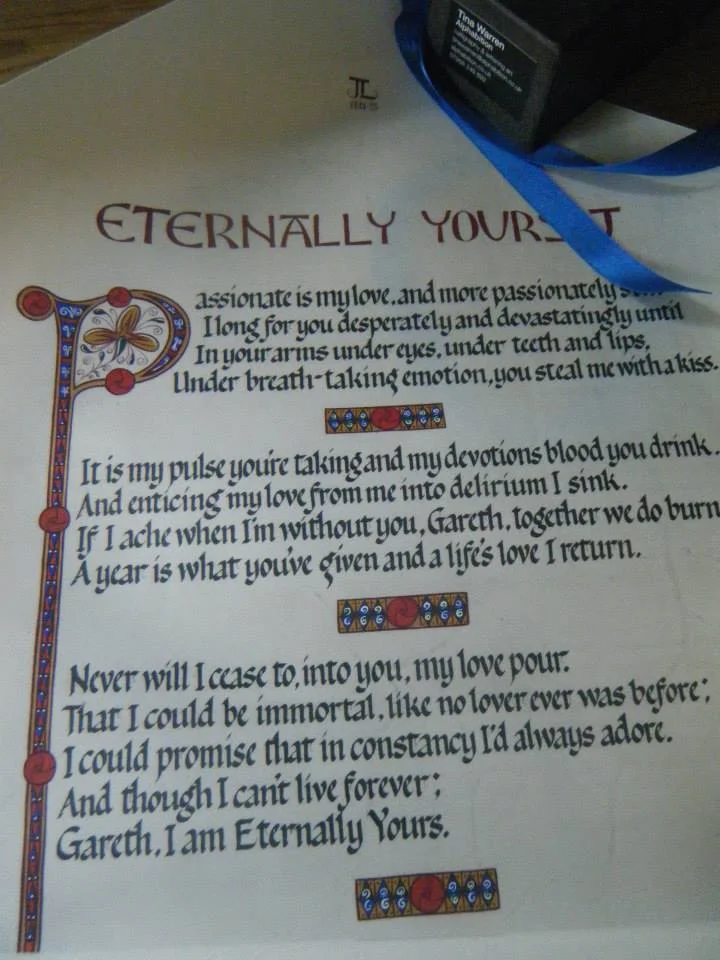 Tina Warren
Alphabition
JL
ETERNALLY YOURS J
Passionate is my love, and more passionately
I long for you desperately and devastatingly until
In your arms under eyes, under teeth and lips,
Under breath-taking emotion, you steal me with a kiss.
It is my pulse you're taking and my devotions blood you drink.
And enticing my love from me into delirium I sink.
If I ache when I'm without you, Gareth, together we do burn
A year is what you've given and a life's love I return.
Never will I cease to, into you, my love pour.
That I could be immortal, like no lover ever was before;
I could promise that in constancy I'd always adore.
And though I can't live forever;
Gareth, I am Eternally Yours.